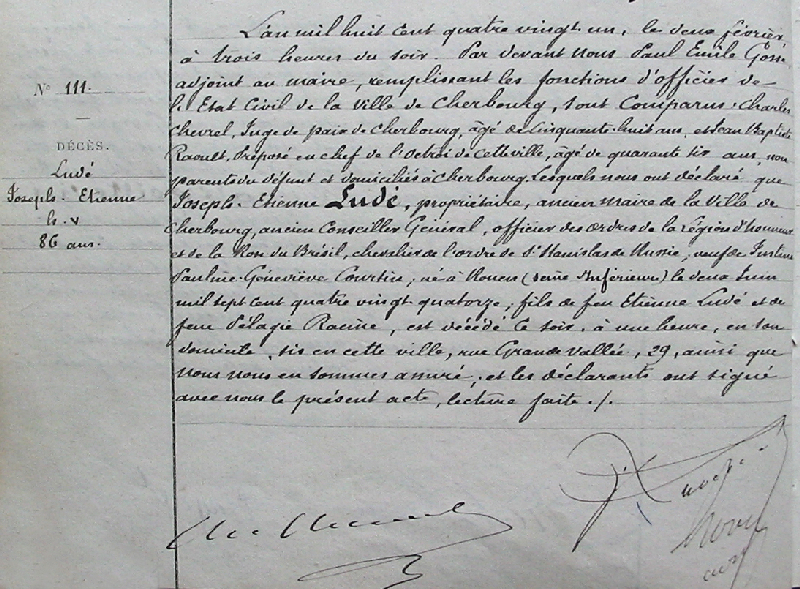 N° 111.
DÉCÈS.
Ludé
Joseph-Etienne
le. v
86 ans.
L'an mil huit cent quatre vingt un, le deux février
à trois heures du soir. Par devant nous Paul Emile Gosse
adjoint au maire, remplissant les fonctions d'officier de
l'Etat Civil de la Ville de Cherbourg, sont Comparus: Charles
Chevrel, Juge de paix de Cherbourg, âgé de Cinquante-huit ans, et Jean Baptiste
Raoult, Préposé en chef de l'Octroi de cette ville, âgé de quarante six ans, non
parents du défunt et domiciliés à Cherbourg. Lesquels nous ont déclaré que
Joseph-Etienne Ludé, propriétaire, ancien maire de la Ville de
Cherbourg, ancien Conseiller Général, officier des ordres de la Légion d'honneur
et de la Rose du Brésil, chevalier de l'ordre de St Stanislas de Russie, veuf de Justine
Pauline-Géneviève Courtin, né à Rouen (Seine Inférieure) le deux Juin
mil sept cent quatre vingt quatorze, fils de feu Etienne Ludé et de
feue Pélagie Racine, est décédé ce soir, à une heure, en son
domicile, sis en cette ville, rue Grande Vallée, 29, ainsi que
nous nous en sommes assuré, et les déclarants ont signé
avec nous le présent acte, lecture faite./.